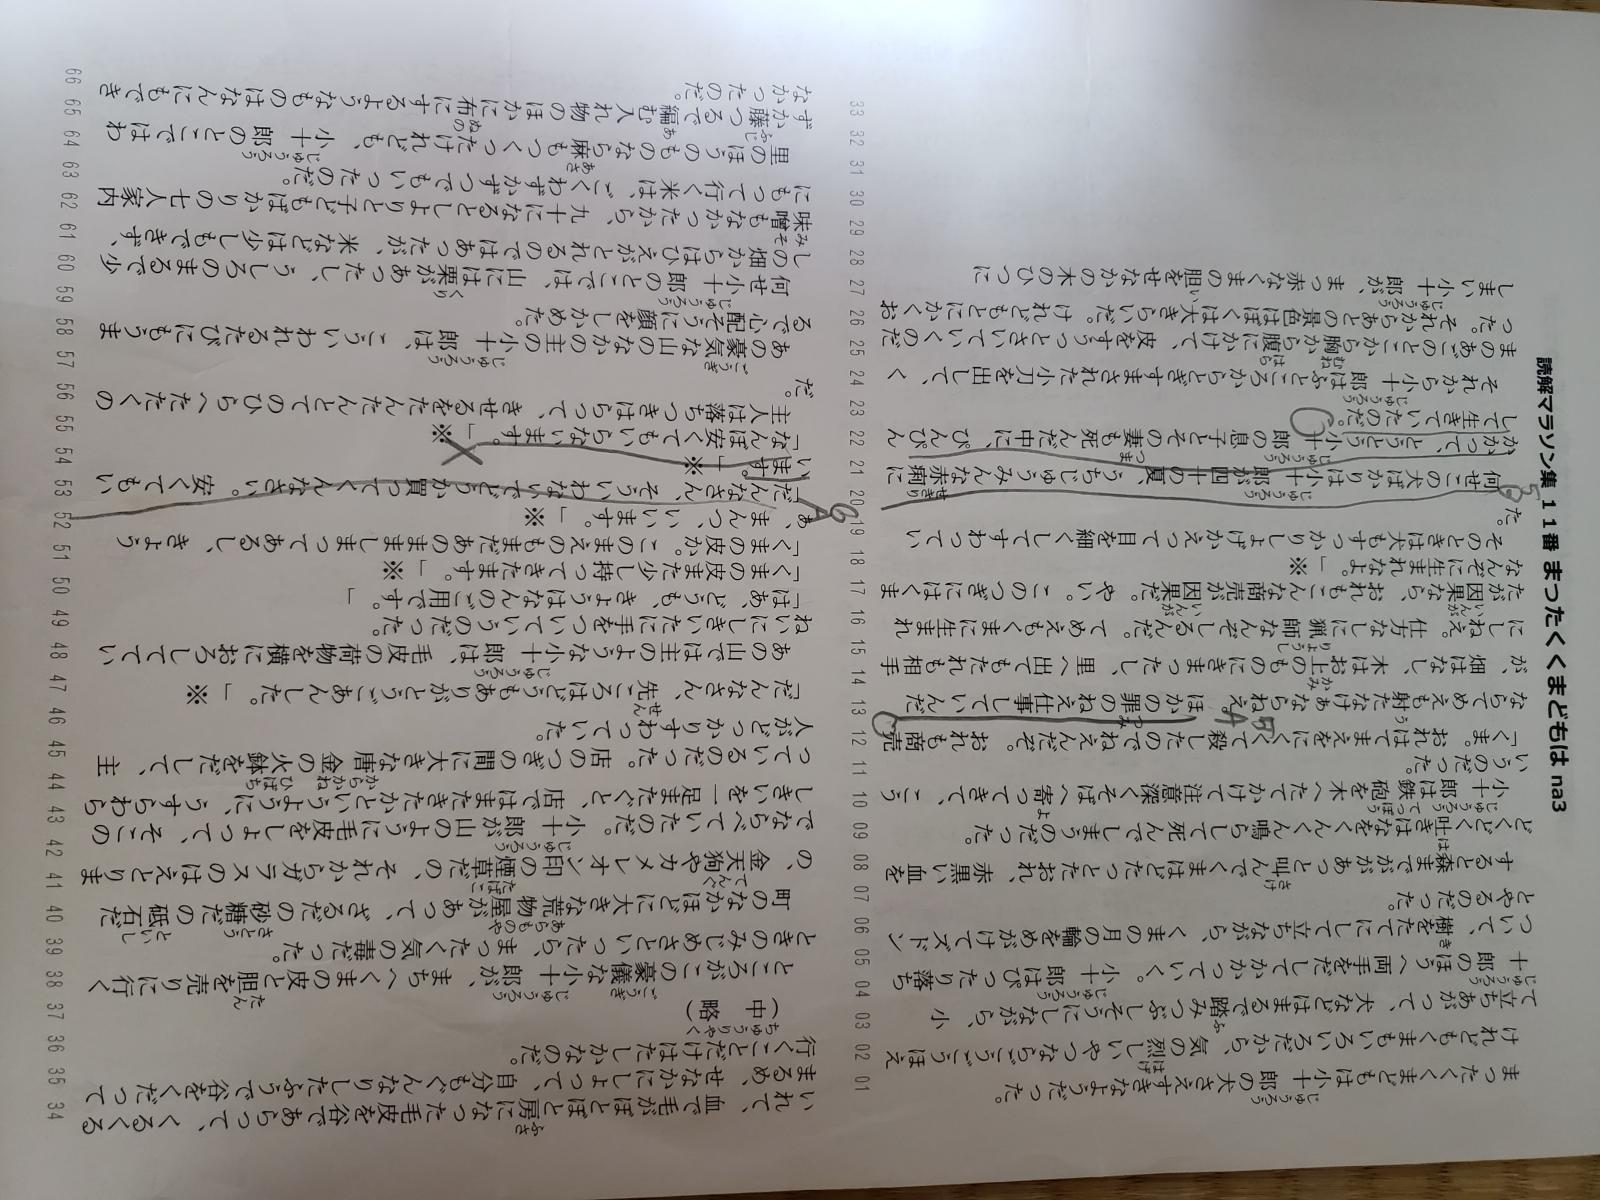 読解マラソン集 11番 まったくくまどもは na3
まったくくまどもは小十郎の犬さえすきなようだった。
けれどもくまもいろいろだから、気の烈しいやつならごうごうほえ
て立ちあがって、犬などはまるで踏みつぶしそうにしながら、小
十郎のほうへ両手をだしてかかっていく。小十郎はぴったり落ち
ついて、樹をたてにして立ちながら、くまの月の輪をめがけてズドン
とやるのだった。
すると森までががあっと叫んでくまはどたっとたおれ、赤黒い血を
どくどく吐きはなをくんくん鳴らして死んでしまうのだった。
小十郎は鉄砲を木へたてかけて注意深くそばへ寄ってきて、こう
いうのだった。
「くま。おれはてまえをにくくて殺したのでねえんだぞ。おれも商売
ならてめえも射たなけぁならねえ。ほかの罪のねえ仕事していんだ
が、畑はなし、木はお上のものにきまったし、里へ出てもたれも相手
にしねえ。仕方なしに猟師なんぞしるんだ。てめえもくまに生まれ
たが因果なら、おれもこんな商売が因果だ。やい。このつぎにはくま
なんぞに生まれなよ。」※
そのときは犬もすっかりしょげかえって目を細くしてすわってい
た。
何せこの犬ばかりは小十郎が四十の夏、うちじゅうみんな赤痢に
かかって、とうとう小十郎の息子とその妻も死んだ中に、ぴんぴん
して生きていたのだ。
それから小十郎はふところからとぎすまされた小刀を出して、く
まのあごのとこから胸から腹にかけて、皮をすうっとさいていくのだ
った。それからあとの景色はぼくは大きらいだ。けれどもとにかくお
しまい小十郎が、まっ赤なくまの胆をせなかの木のひつに
いれて、血で毛がぼとぼと房になった毛皮を谷であらって、くるくる
まるめ、せなかにしょって、自分もぐんなりしたふうで谷をくだって
行くことだけはたしかなのだ。
(中略)
ところがこの豪儀な小十郎が、まちへくまの皮と胆を売りに行く
ときのみじめさといったら、まったく気の毒だった。
町のなかほどに大きな荒物屋があって、ざるだの砂糖だの砥石だ
の、金天狗やカメレオン印の煙草だの、それからガラスのはえとりま
でならべていたのだ。小十郎が山のように毛皮をしょって、そこの
しきいを一足またぐと、店ではまたきたかというように、うすらわら
っているのだった。店のつぎの間に大きな唐金の火鉢をだして、主
人がどっかりすわっていた。
「だんなさん、先ころはどうもありがとうごあんした。」※
あの山では主のような小十郎は、毛皮の荷物を横におろしててい
ねいにしきいたに手をついていうのだった。
「はあ、どうも、きょうはなんのご用です。」
「くまの皮また少し持ってきたます。」※
「くまの皮か。このまえのもまだあのまましまってあるし、きょう
ぁ、まんつ、いいます。」※
「だんなさん、そういわないでどうか買ってくんなさい。安くてもい
います。」※
「なんぼ安くてもいらないます。」※
主人は落ちつきはらって、きせるをたんたんとてのひらへたたくの
だ。
あの豪気な山のなかの主の小十郎は、こういわれるたびにもうま
るで心配そうに顔をしかめた。
何せ小十郎のとこでは、山には栗があったし、うしろのまるで少
しの畑からはひえがとれるのではあったが、米などは少しもできず、
味噌もなかったから、九十になるとしよりと子どもばかりの七人家内
にもって行く米は、ごくわずかずつでもいったのだ。
里のほうのものなら麻もつくったけれども、小十郎のとこではわ
ずか藤つるで編む入れ物のほかに布にするようなものはなんにもでき
なかったのだ。